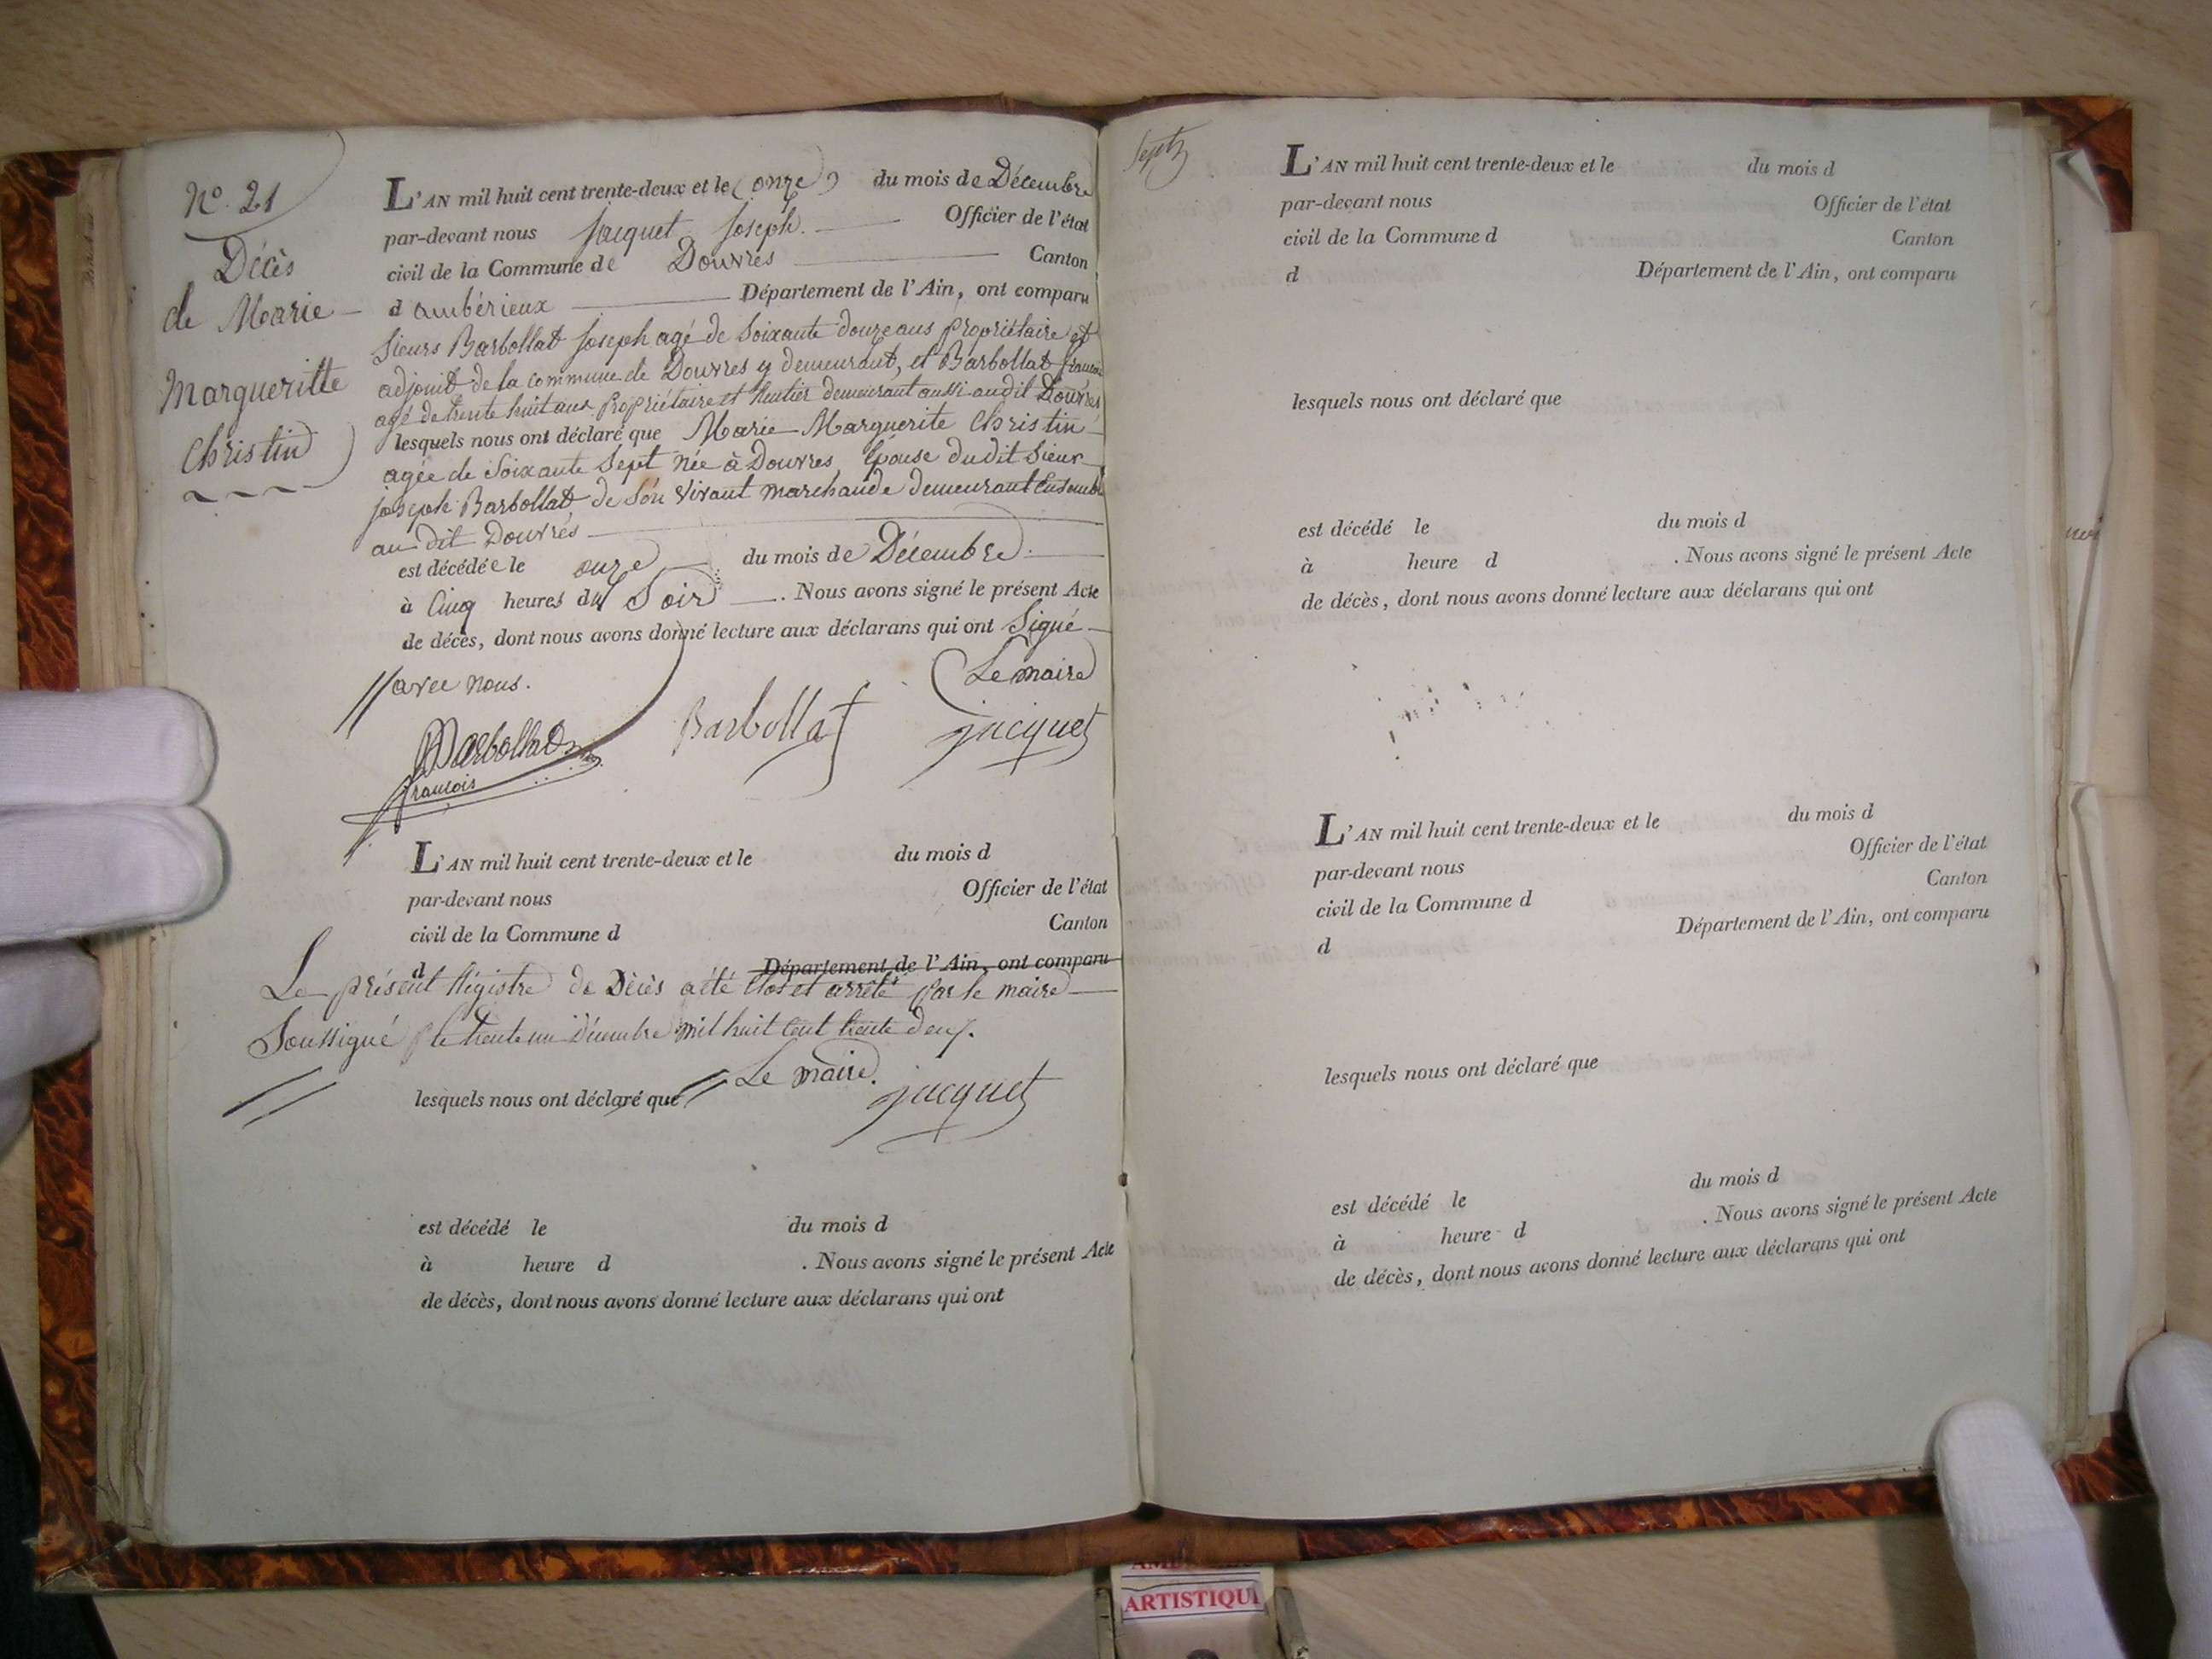 N.o 21
Décès
de Marie
Margueritte
Christin
L'AN mil huit cent trente-deux et le (onze) du mois de Décembre
par-devant nous Jacquet Joseph. Officier de l'état
civil de la Commune de Douvres Canton
d'ambérieux Département de l'Ain, ont comparu
Sieurs Barbollat Joseph agé de Soixante douze ans propriétaire et
adjoint de la commune de Douvres y demeurant, et Barbollat françois
agé de trente huit ans propriétaire et Rentier demeurant aussi audit Douvres
lesquels nous ont déclaré que Marie Marguerite Christin
agée de Soixante Sept née à Douvres, Épouse dudit Sieur
joseph Barbollat, de Son vivant marchande demeurant Ensemble
au dit Douvres
est décédée le onze du mois de Décembre.
à Cinq heures du Soir. Nous avons signé le présent Acte
de décès, dont nous avons donné lecture aux déclarans qui ont Signé
// avec nous.
Le maire
Barbollat
françois
Barbollat
jacquet
L'AN mil huit cent trente-deux et le du mois d
par-devant nous Officier de l'état
civil de la Commune d Canton
d Département de l'Ain, ont comparu
Le présent Régistre de Décès a été Clos et arrêté par le maire
Soussigné le trente un Décembre mil huit Cent trente deux.
// Le maire.
lesquels nous ont déclaré que // jacquet
est décédé le du mois d
à heure d . Nous avons signé le présent Acte
de décès, dont nous avons donné lecture aux déclarans qui ont
L'AN mil huit cent trente-deux et le du mois d
par-devant nous Officier de l'état
civil de la Commune d Canton
d Département de l'Ain, ont comparu
lesquels nous ont déclaré que
est décédé le du mois d
à heure d . Nous avons signé le présent Acte
de décès, dont nous avons donné lecture aux déclarans qui ont
L'AN mil huit cent trente-deux et le du mois d
par-devant nous Officier de l'état
civil de la Commune d Canton
d Département de l'Ain, ont comparu
lesquels nous ont déclaré que
est décédé le du mois d
à heure d . Nous avons signé le présent Acte
de décès, dont nous avons donné lecture aux déclarans qui ont
ARTISTIQU